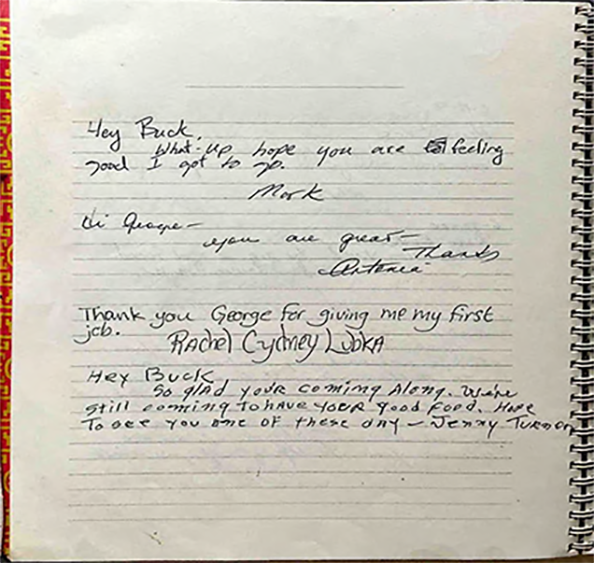 Hey Buck,
What-up hope you are feeling
good I got to go.
Mark
Hi George—
you are great—
Thanks
Antonia
Thank you George for giving me my first
job.
Rachel Cydney Lubka
Hey Buck
So glad your coming Along. We're
still comming to have your good food. Hope
To see you one of these day — Jenny Turner